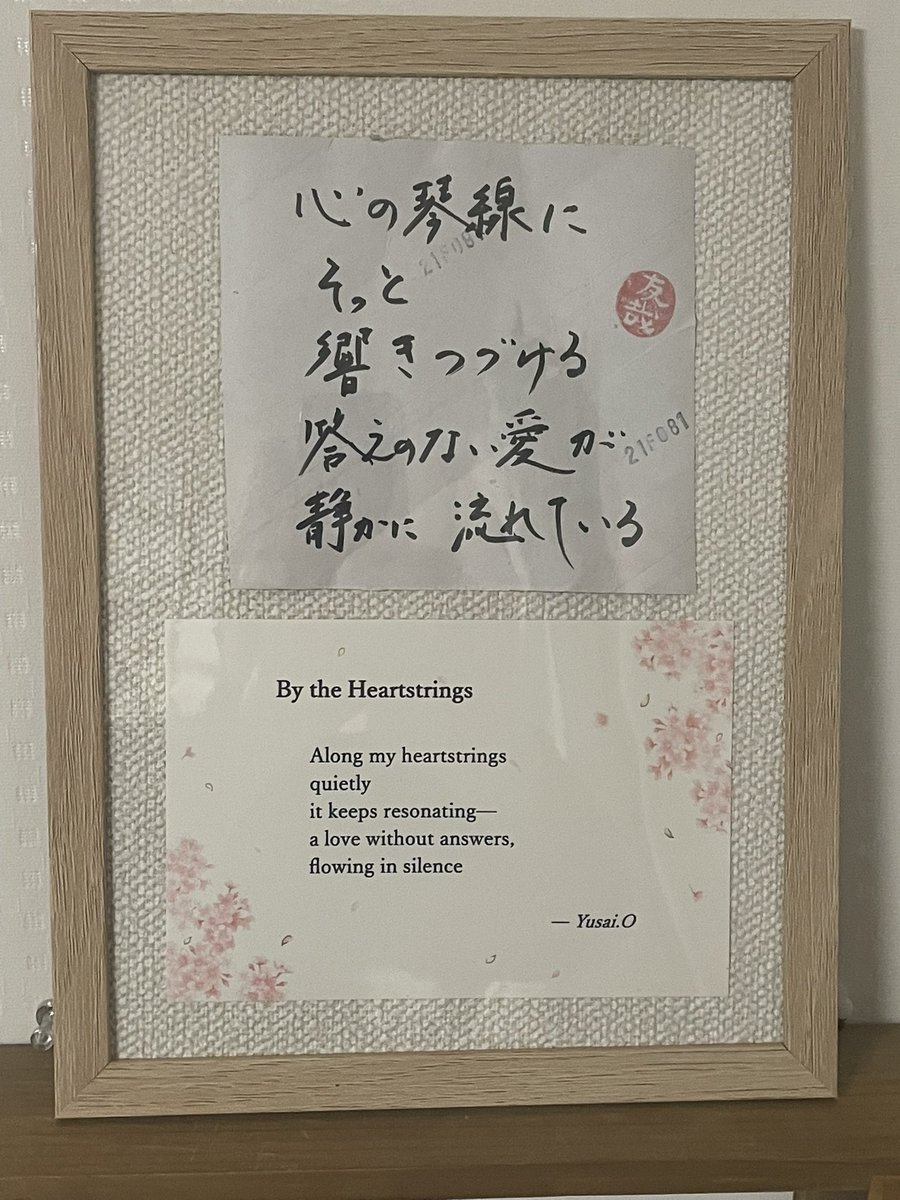 心の琴線に
21F081
そっと
友哉
響きつづける
答えのない愛が
21F081
静かに 流れている
By the Heartstrings
Along my heartstrings
quietly
it keeps resonating—
a love without answers,
flowing in silence
— Yusai.O